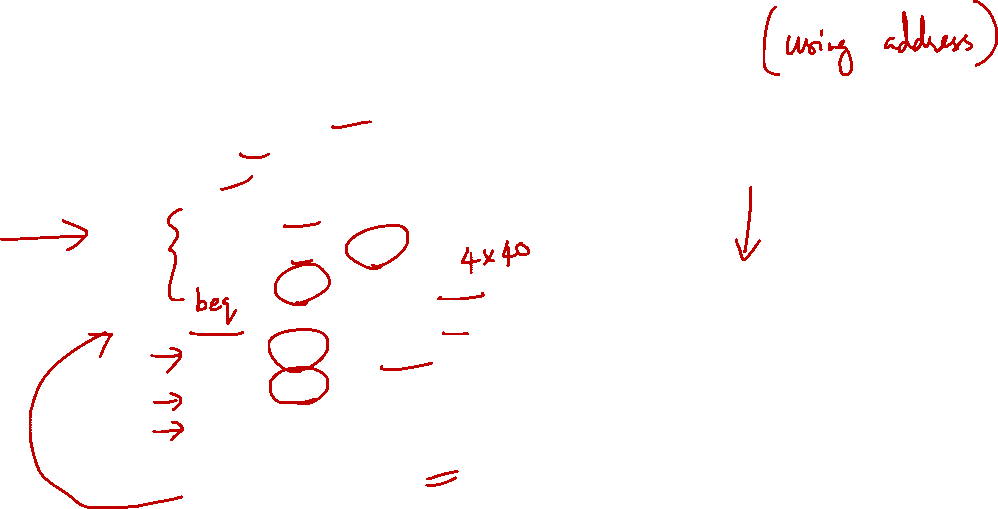 (using address)
4x40
beq